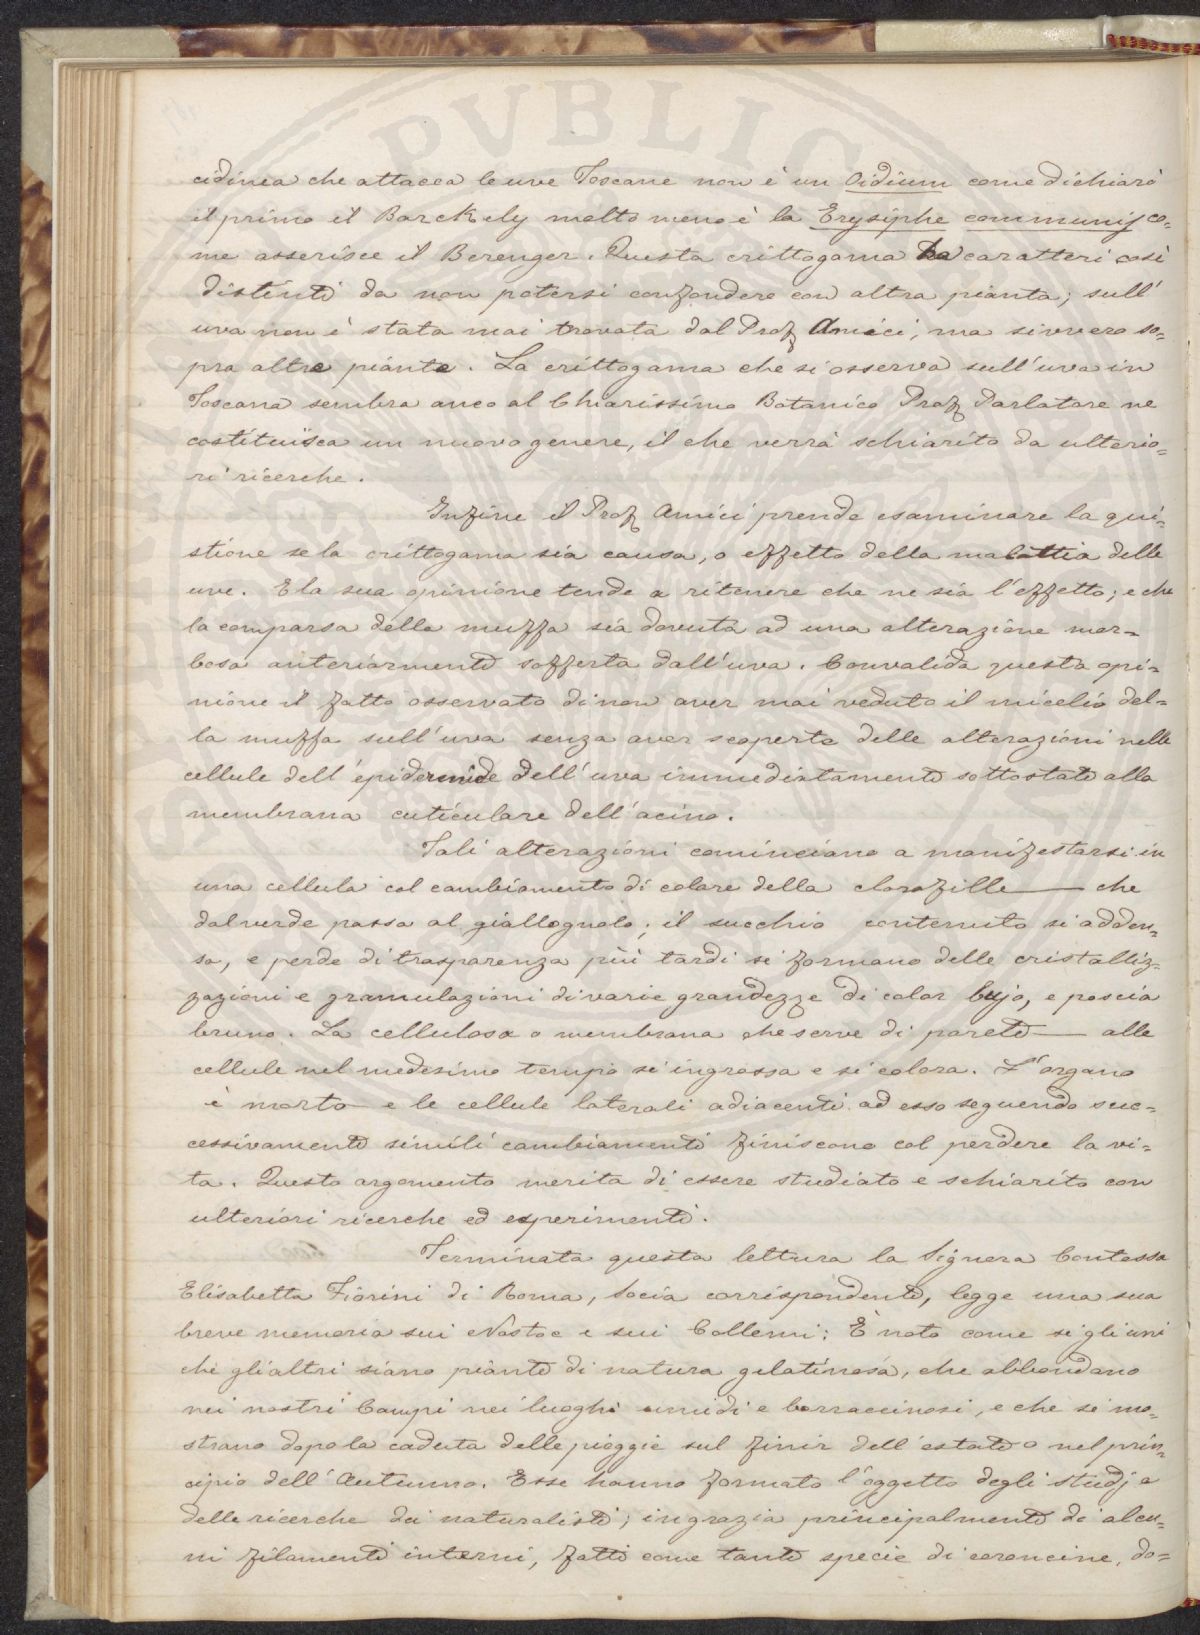 PVBLIC
cidinea che attacca le uve Toscane non è un Oidium come dichiarò
il primo il Barckely molto meno è la Erysiphe communis co=
me asserisce il Berenger. Questa crittogama ha caratteri così
distinti da non potersi confondere con altra pianta; sull'
uva non è stata mai trovata dal Prof Amici, ma sivvero so=
pra altre piante. La crittogama che si osserva sull'uva in
Toscana sembra anco al Chiarissimo Botanico Prof Parlatore ne
costituisca un nuovo genere, il che verrà schiarito da ulterio=
ri ricerche.
Infine il Prof Amici prende esaminare la qui=
stione se la crittogama sia causa, o effetto della malattia delle
uve. E la sua opinione tende a ritenere che ne sia l'effetto; e che
la comparsa della muffa sia dovuta ad una alterazione mor=
bosa anteriormente sofferta dall'uva. Convalida questa opi=
nione il fatto osservato di non aver mai veduto il micelio del=
la muffa sull'uva senza aver scoperte delle alterazioni nelle
cellule dell'epidermide dell'uva immediatamente sottostate alla
membrana cuticulare dell'acino.
Tali alterazioni cominciano a manifestarsi in
una cellula col cambiamento di colore della clorofille — che
dal verde passa al giallognolo; il succhio contenuto si adden=
sa, e perde di trasparenza più tardi si formano delle cristalliz=
zazioni e granulazioni di varie grandezze di color bujo, e poscia
bruno. La cellulosa o membrana che serve di parete — alle
cellule nel medesimo tempo si ingrossa e si colora. L'organo
è morto e le cellule laterali adiacenti ad esso seguendo suc=
cessivamente simili cambiamenti finiscono col perdere la vi=
ta. Questo argomento merita di essere studiato e schiarito con
ulteriori ricerche ed esperimenti.
Terminata questa lettura la Signora Contessa
Elisabetta Fiorini di Roma, Socia corrispondente, legge una sua
breve memoria sui Nostoc e sui Collemi: È noto come sì gli uni
che gli altri siano piante di natura gelatinosa, che abbondano
nei nostri Campi nei luoghi umidi e borraccinosi, e che si mo=
strano dopo la caduta delle pioggie sul finir dell'estate o nel prin=
cipio dell'Autunno. Esse hanno formato l'oggetto degli studj e
delle ricerche dei naturalisti; in grazia principalmente di alcu=
ni filamenti interni, fatti come tante specie di coroncine, do=